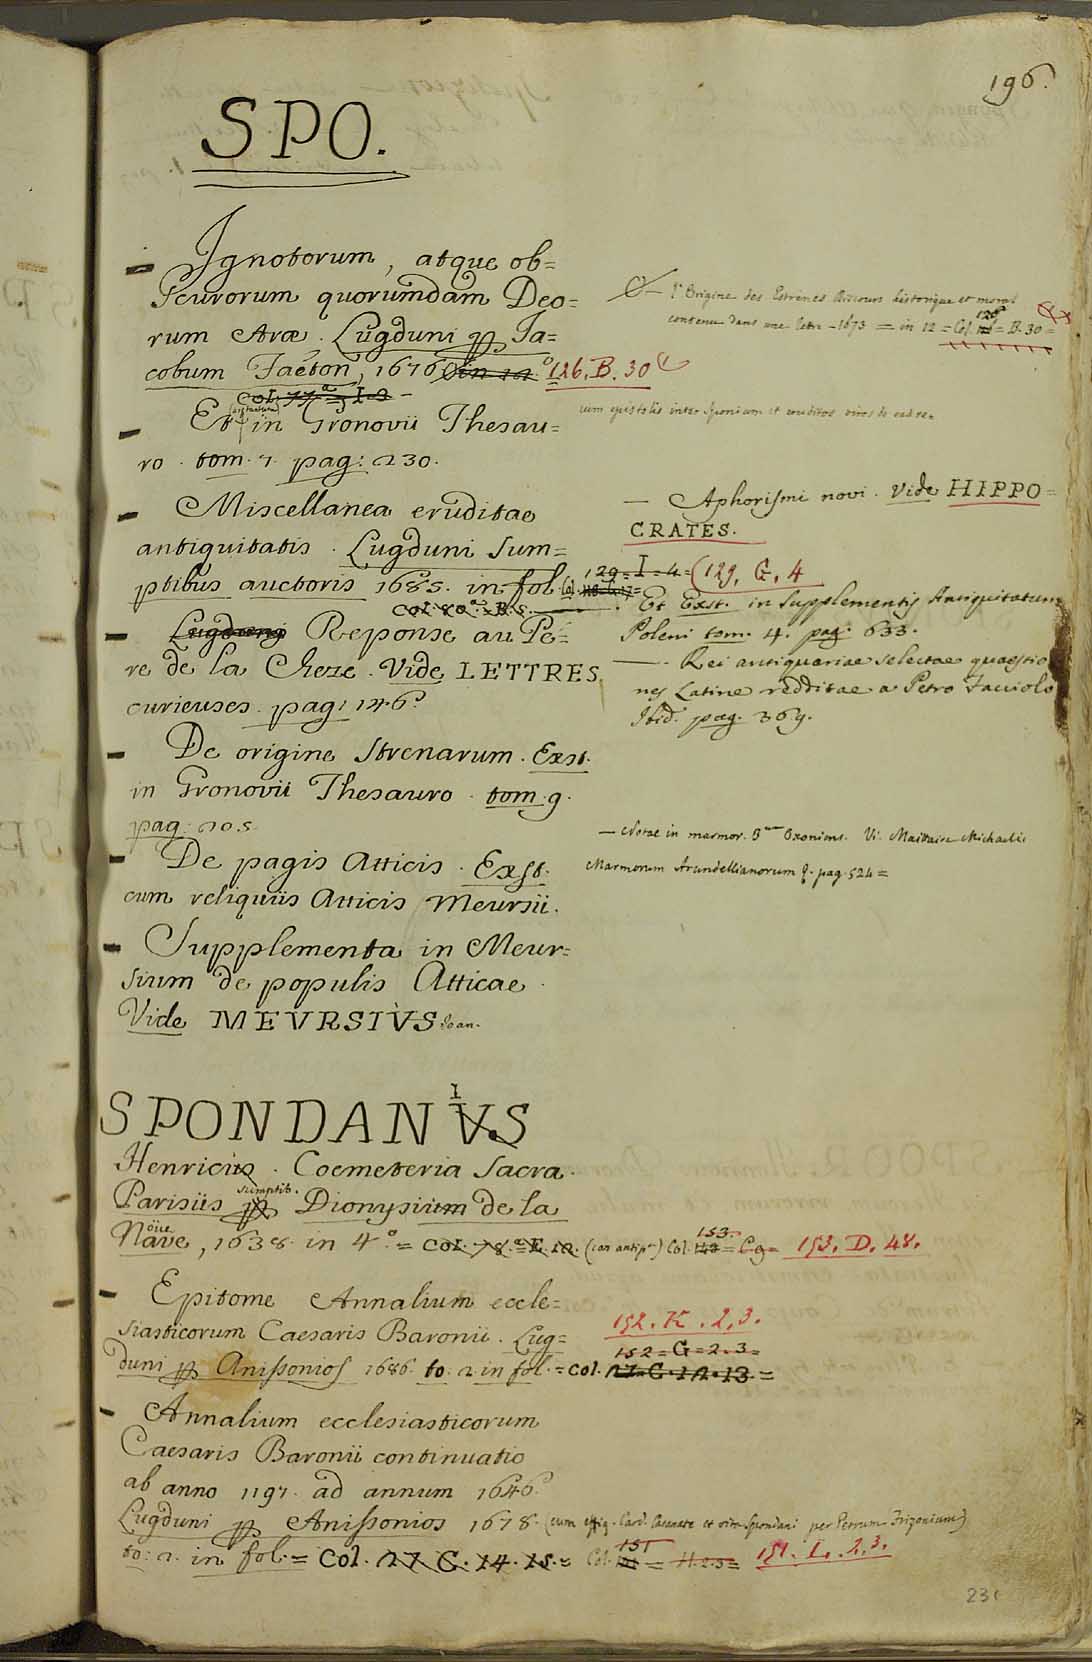 196.
SPO.
Ignotorum, atque ob=
scurorum quorumdam Deo=
rum Aræ. Lugduni per Ja=
cobum Faëton, 1676 in 12.° 126. B. 30
Col. 77.ª = I = 9
Et in Gronovii Thesau=
ro. tom. 7. pag: 230.
Miscellanea eruditae
antiquitatis. Lugduni sum=
ptibus auctoris 1685. in fol. Col.
129 = I = 4 (129. G. 4
Col. 80.ª = B. 5.
Lugduni Reponse au Pe=
re de la Cheze. Vide LETTRES
curieuses. pag: 146.
De origine Strenarum. Exst.
in Gronovii Thesauro. tom. 9.
pag: 205.
De pagis Atticis. Exst.
cum reliquiis Atticis Meursii.
Supplementa in Meur=
sium de populis Atticae.
Vide MEVRSIVS Joan.
— l'Origine des Estrenes discours historique et moral
contenu dans une letre - 1673 = in 12 = Col. 126 = B. 30 =
cum epistolis inter Sponium et eruditos viros de eadem re.
— Aphorismi novi. Vide HIPPO=
CRATES.
Et Exst. in Supplementis Antiquitatum
Poleni tom. 4. pag. 633.
—. Rei antiquariae selectae quaestio
nes Latine redditae a Petro Facciolo
Ibid. pag. 369.
— Notae in marmor. Oxoniens. Vi. Maittaire Michaelis
Marmorum Arundellianorum &. pag. 524 =
SPONDANVS
I
Henricus. Coemeteria Sacra.
Parisiis per sumptib. Dionysium de la
Nave, 1638. in 4.° = Col. 78.ª = E. 12. Col. 153. = C9 = 153. D. 48.
Noüe
Epitome Annalium eccle=
siasticorum Caesaris Baronii. Lug=
duni per Anissonios 1686. to. 2. in fol. = Col. 27. G. 12. 13 =
152. K. 2, 3.
152 = G = 2. 3 =
Annalium ecclesiasticorum
Caesaris Baronii continuatio
ab anno 1197. ad annum 1646.
Lugduni per Anissonios 1678. (cum effig. Card. Casanate et vita Spondani per Petrum Frizonium)
to: 2. in fol. = Col. 27 G. 14. 15. = Col. 151 = H. 2. 3 = 151. L. 2, 3.
231